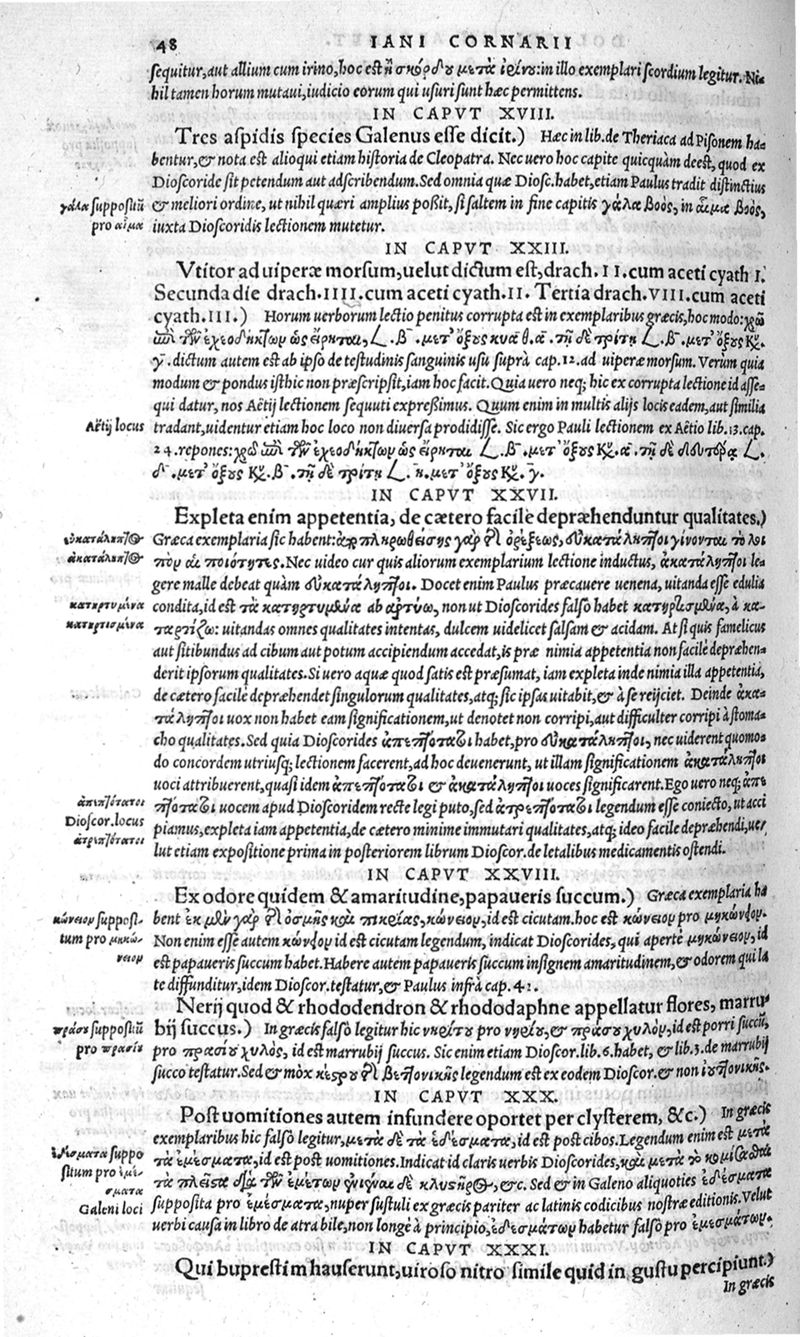 48 IANI CORNARII
sequitur, aut allium cum irino, hoc est ἢ σκόρδου μετὰ ἰρίνου: in illo exemplari scordium legitur. Ni=
hil tamen horum mutaui, iudicio eorum qui usuri sunt hæc permittens.
IN CAPVT XVIII.
Tres aspidis species Galenus esse dicit.) Hæc in lib. de Theriaca ad Pisonem ha=
bentur, & nota est alioqui etiam historia de Cleopatra. Nec uero hoc capite quicquàm deest, quod ex
Dioscoride sit petendum aut adscribendum. Sed omnia quæ Diosc. habet, etiam Paulus tradit distinctius
γάλα suppositũ
& meliori ordine, ut nihil quæri amplius poßit, si saltem in fine capitis γάλα βοὸς, in αἷμα βοὸς,
pro αἷμα
iuxta Dioscoridis lectionem mutetur.
IN CAPVT XXIII.
Vtitor ad uiperæ morsum, uelut dictum est, drach. II. cum aceti cyath I.
Secunda die drach. IIII. cum aceti cyath. II. Tertia drach. VIII. cum aceti
cyath. III.) Horum uerborum lectio penitus corrupta est in exemplaribus græcis, hoc modo: χρῶ
ἐπὶ τῶν ἐχεοδήκτων ὡς εἴρηται, β̄. μετ' ὄξους κυά θ. ᾱ. τῇ δὲ τρίτῃ β̄. μετ' ὄξους κυ.
γ̄. dictum autem est ab ipso de testudinis sanguinis usu suprà cap. 12. ad uiperæ morsum. Verùm quia
modum & pondus isthic non præscripsit, iam hoc facit. Quia uero neq; hic ex corrupta lectione id asse=
qui datur, nos Aëtij lectionem sequuti expreßimus. Quum enim in multis alijs locis eadem, aut similia
Aëtij locus
tradant, uidentur etiam hoc loco non diuersa prodidisse. Sic ergo Pauli lectionem ex Aëtio lib. 13. cap.
24. repones: χρῶ ἐπὶ τῶν ἐχεοδήκτων ὡς εἴρηται β̄. μετ' ὄξους κυ. ᾱ. τῇ δὲ δευτέρᾳ
δ̄. μετ' ὄξους κυ. β̄. τῇ δὲ τρίτῃ η̄. μετ' ὄξους κυ. γ̄.
IN CAPVT XXVII.
Expleta enim appetentia, de cætero facile depræhenduntur qualitates.)
εὐκατάληπτοι
Græca exemplaria sic habent: ἀποπληρωθείσης γὰρ τῆς ὀρέξεως, εὐκατάληπτοι γίνονται τὸ λοι
ἀκατάληπτοι
πὸν αἱ ποιότητες. Nec uideo cur quis aliorum exemplarium lectione inductus, ἀκατάληπτοι le=
gere malle debeat quàm εὐκατάληπτοι. Docet enim Paulus præcauere uenena, uitanda esse edulia
κατηρτυμένα
condita, id est τὰ κατηρτυμένα ab ἀρτύω, non ut Dioscorides falso habet κατηρτισμένα, à κα=
κατηρτισμένα
ταρτίζω: uitandas omnes qualitates intentas, dulcem uidelicet salsam & acidam. At si quis famelicus
aut sitibundus ad cibum aut potum accipiendum accedat, is præ nimia appetentia non facilè depræhen=
derit ipsorum qualitates. Si uero aquæ quod satis est præsumat, iam expleta inde nimia illa appetentia,
de cætero facile depræhendet singulorum qualitates, atq; sic ipsas uitabit, & à se reijciet. Deinde ἀκα=
τάληπτοι uox non habet eam significationem, ut denotet non corripi, aut difficulter corripi à stoma=
cho qualitates. Sed quia Dioscorides ἀπεπτόταται habet, pro εὐκατάληπτοι, nec uiderent quomo=
do concordem utriusq; lectionem facerent, ad hoc deuenerunt, ut illam significationem ἀκατάληπτοι
uoci attribuerent, quasi idem ἀπεπτόταται & ἀκατάληπτοι uoces significarent. Ego uero neq; ἀπε
ἀπεπτόταται
πτόταται uocem apud Dioscoridem recte legi puto, sed ἀτρεπτόταται legendum esse coniecto, ut acci
Dioscor. locus
piamus, expleta iam appetentia, de cætero minime immutari qualitates, atq; ideo facile depræhendi, ue=
ἀτρεπτόταται
lut etiam expositione prima in posteriorem librum Dioscor. de letalibus medicamentis ostendi.
IN CAPVT XXVIII.
Ex odore quidem & amaritudine, papaueris succum.) Græca exemplaria ha
κώνειον supposi=
bent ἐκ μὲν γὰρ τῆς ὀσμῆς καὶ πικρίας, κώνειον, id est cicutam. hoc est κώνειον pro μηκώνειον.
tum pro μηκώ=
νειον
Non enim esse autem κώνειον id est cicutam legendum, indicat Dioscorides, qui apertè μηκώνειον, id
est papaueris succum habet. Habere autem papaueris succum insignem amaritudinem, & odorem qui la
te diffunditur, idem Dioscor. testatur, & Paulus infrà cap. 42.
Nerij quod & rhododendron & rhododaphne appellatur flores, marru=
πράσου suppositũ
bij succus.) In græcis falsò legitur hic νηρίτου pro νηρίου, & πράσου χυλὸν, id est porri succũ,
pro πρασίου
pro πρασίου χυλὸς, id est marrubij succus. Sic enim etiam Dioscor. lib. 6. habet, & lib. 3. de marrubij
succo testatur. Sed & mox κέστρου τῆς βετονικῆς legendum est ex eodem Dioscor. & non ἰουτονικῆς.
IN CAPVT XXX.
Post uomitiones autem infundere oportet per clysterem, &c.) In græcis
exemplaribus hic falsò legitur, μετὰ δὲ τὰ ἐδέσματα, id est post cibos. Legendum enim est μετὰ
ἐδέσματα suppo
τὰ ἐμέσματα, id est post uomitiones. Indicat id claris uerbis Dioscorides, καὶ μετὰ τὸ κομίσασθαι
situm pro ἐμέ=
σματα
τὰ πλεῖστα διὰ τῶν ἐμέτων ἐνιέναι δὲ κλυστῆρος, &c. Sed & in Galeno aliquoties ἐδέσματα
Galeni loci
supposita pro ἐμέσματα, nuper sustuli ex græcis pariter ac latinis codicibus nostræ editionis. Velut
uerbi causa in libro de atra bile, non longè à principio, ἐδεσμάτων habetur falsò pro ἐμεσμάτων.
IN CAPVT XXXI.
Qui buprestim hauserunt, uiroso nitro simile quid in gustu percipiunt.)
In græcis